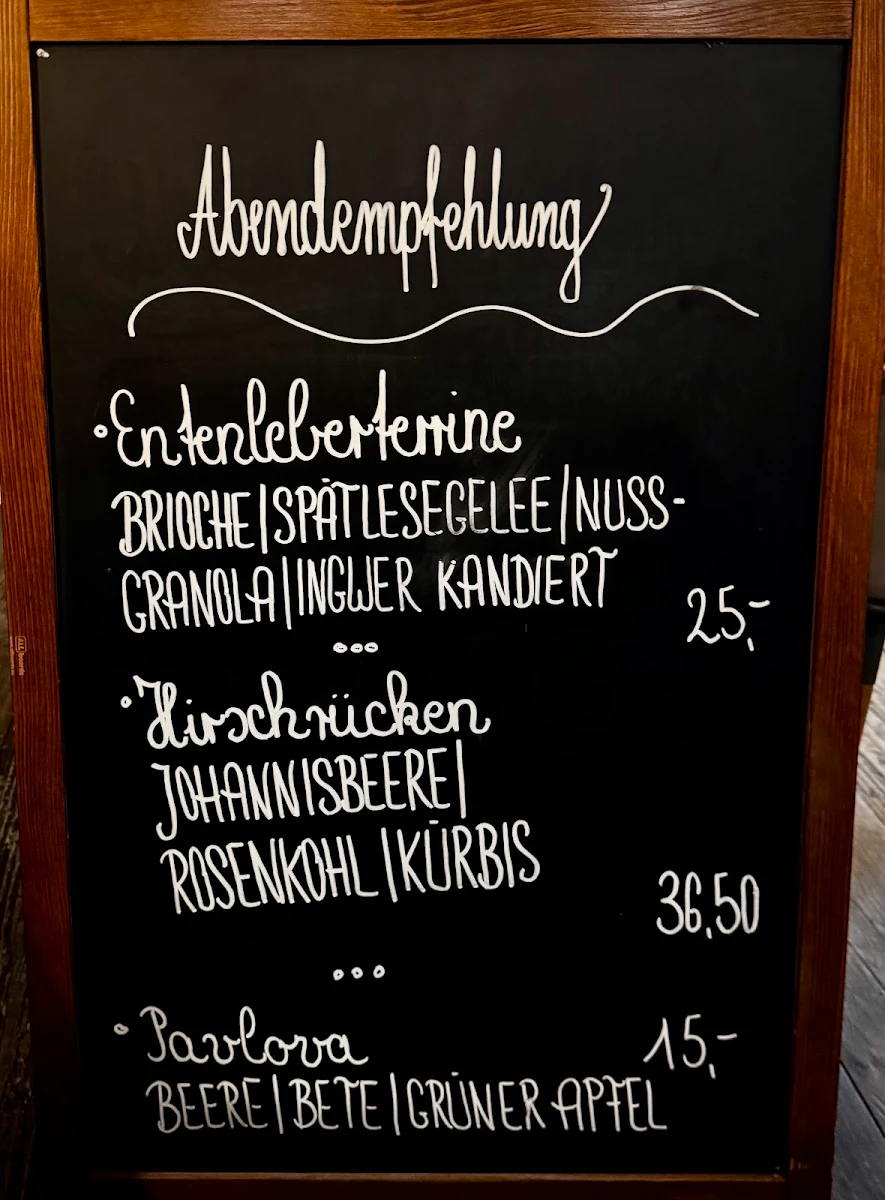 Abendempfehlung
Entenleberterrine
BRIOCHE|SPÄTLESEGELEE|NUSS-
GRANOLA|INGWER KANDIERT
25,-
Hirschrücken
JOHANNISBEERE|
ROSENKOHL|KÜRBIS
36,50
Pavlova 15,-
BEERE|BETE|GRÜNER APFEL
ALL boards